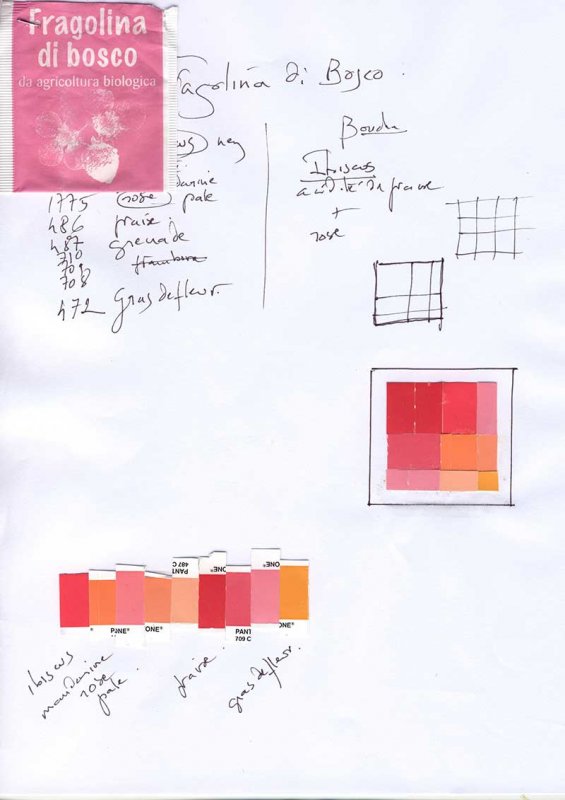 Fragolina
di bosco
da agricoltura biologica
di Bosco.
1775 rose pale
486 fraise.
487 grenade
710
709 framboise
708
472 Gras de fleur.
Ibiscus
acidité de
+
rose
PANT
487 C
ONE®
ONE®
®
NE®
ONE®
PANT
709 C
ONE®
ibiscus
mandarine
rose
pale
fraise.
gras de fleur.